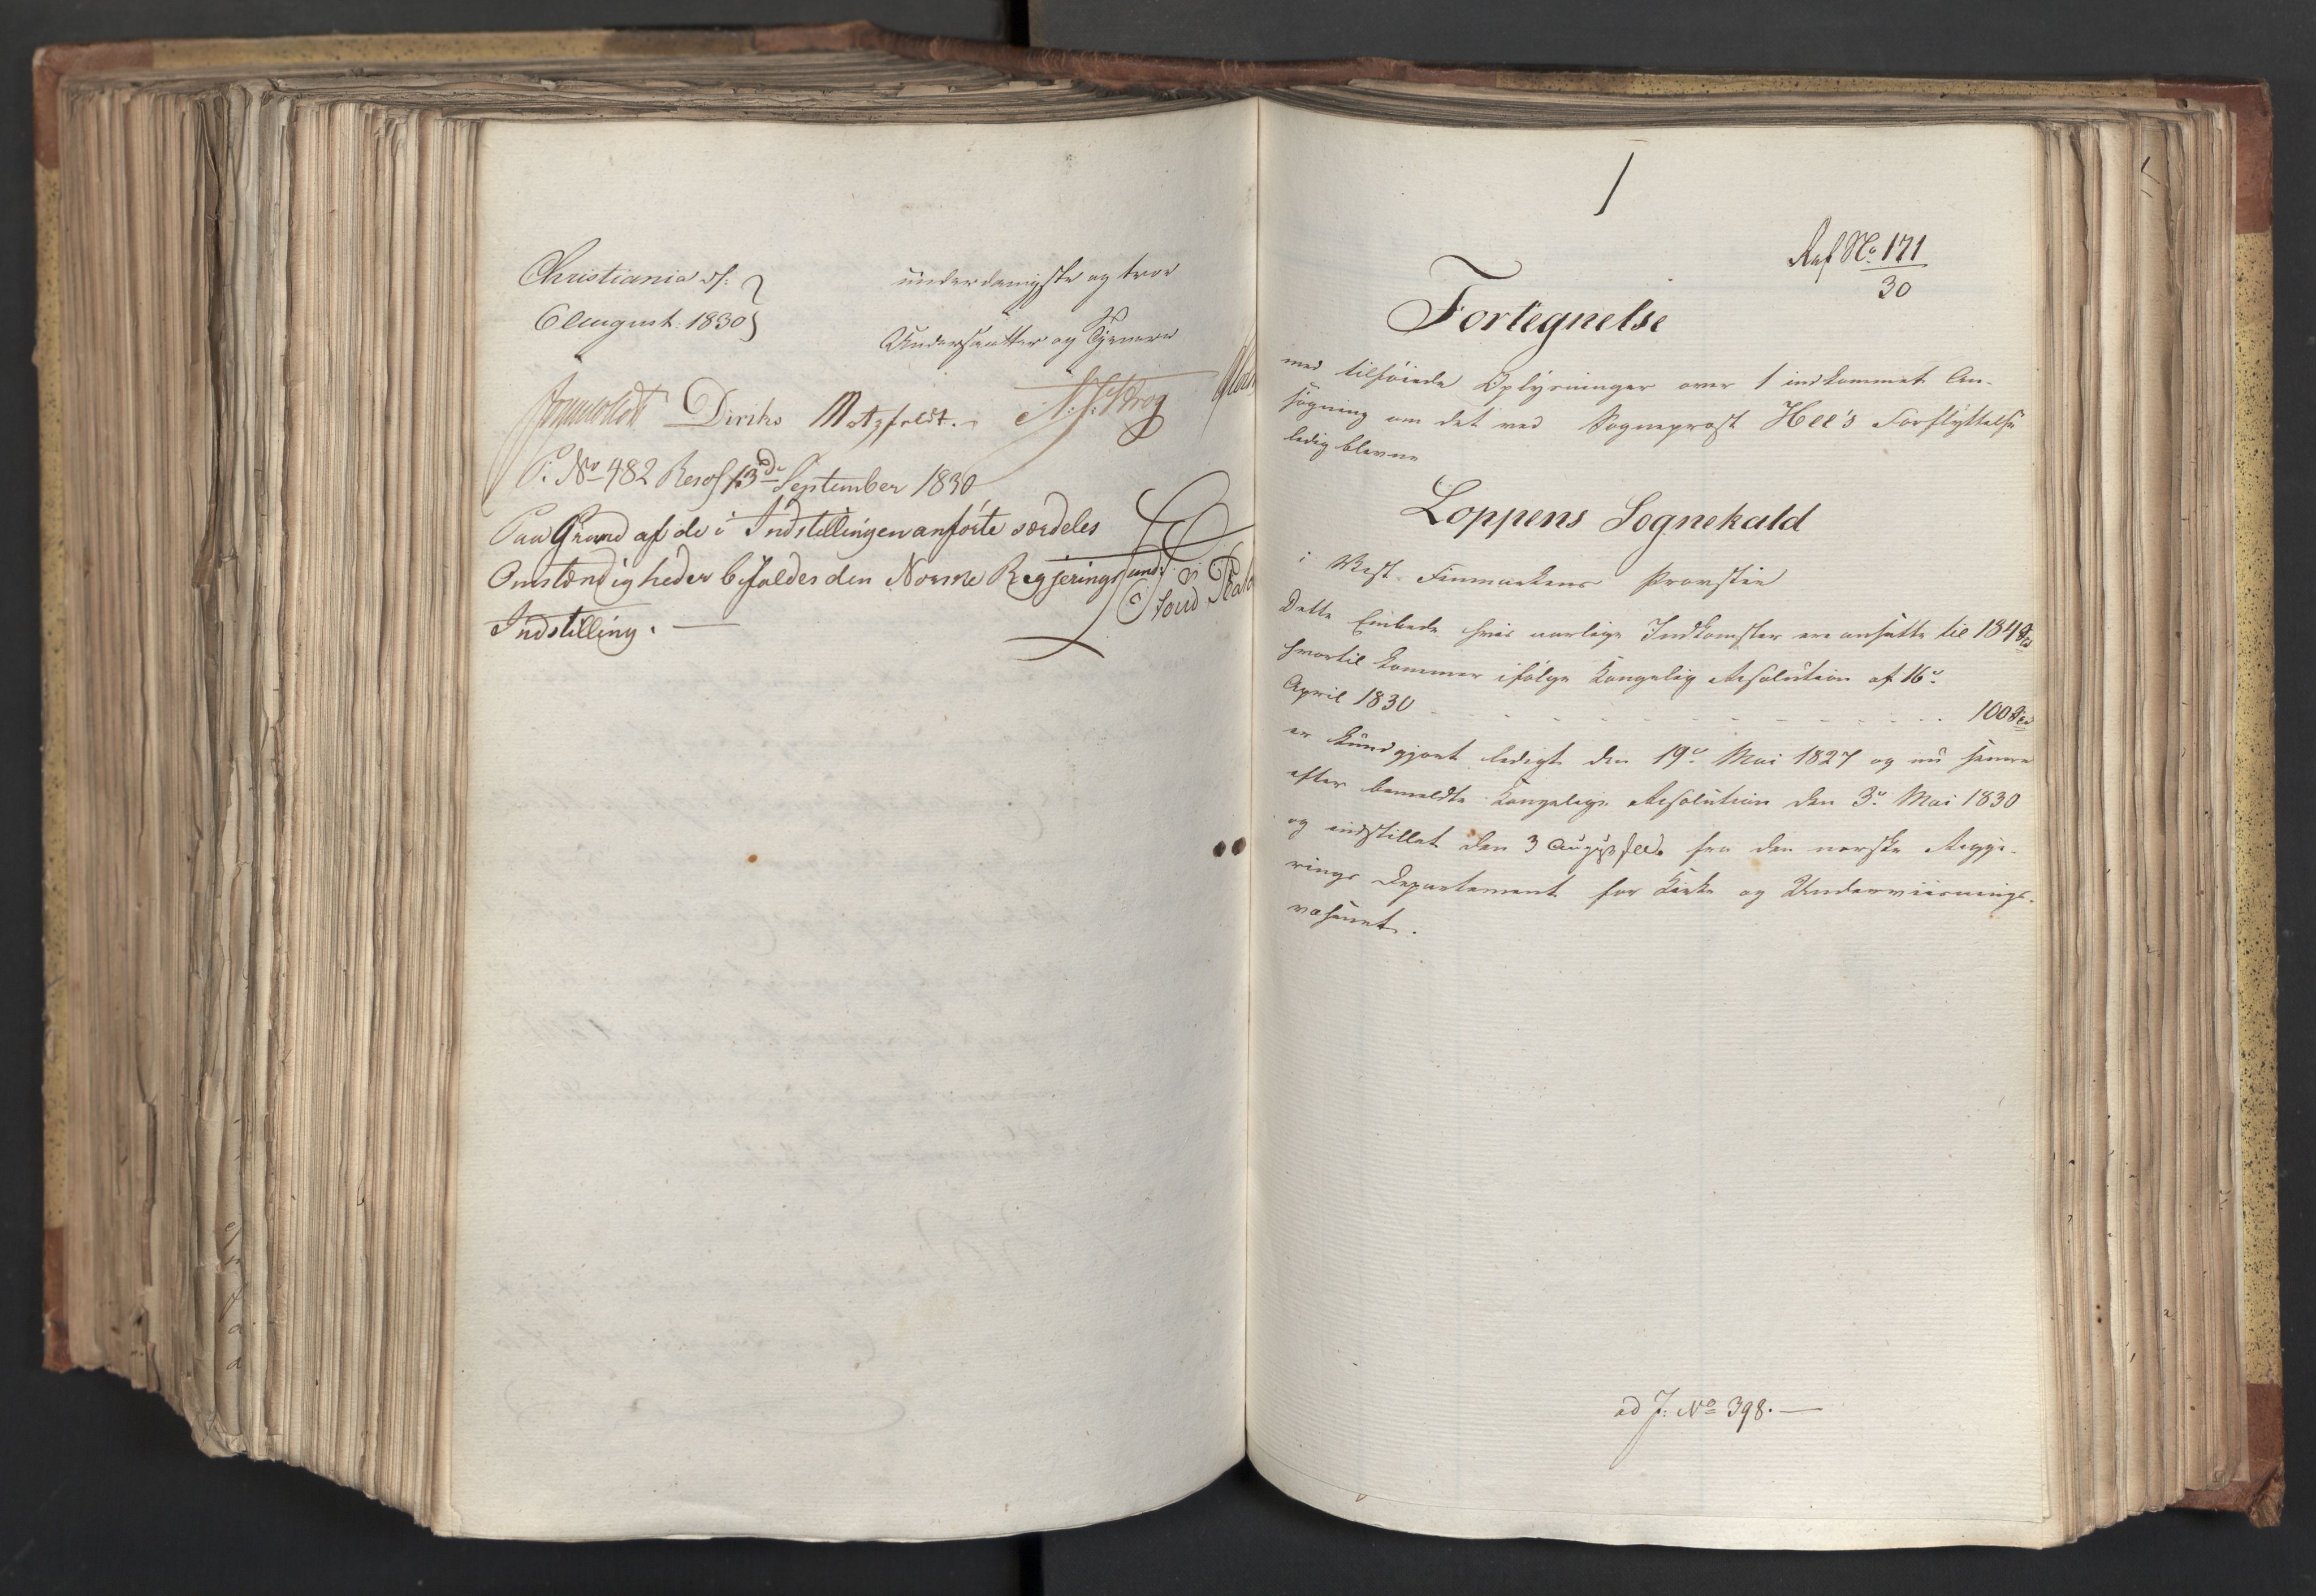 Christiania d:
6 August: 1830
underdanigste og troe
Undersaatter og Tjenere
Diriks Motzfeldt. N: J: Krog
P: No 482 Resol 13de September 1830
Paa Grund af de i Indstillingen anförte særdeles
Omstændigheder bifaldes den Norske Regjerings und:
Indstilling. —
Ref No 171
30
Fortegnelse
med tilföiede Oplysninger over 1 indkommet An-
sögning om det ved Sogneprest Hee's Forflyttelse
ledig blevne
Loppens Sognekald
i Vest-Finmarkens Provstie
Dette Embede hvis aarlige Indkomster ere ansatte til 184 Spd
hvortil kommer ifölge Kongelig Resolution af 16de
April 1830 - - - - - - - - - - - - 100 Spd
er kundgjort ledigt den 19de Mai 1827 og nu senere
efter bemeldte Kongelige Resolution den 3de Mai 1830
og indstillet den 3 August fra den norske Regje-
rings Departement for Kirke og Underviisnings-
væsenet.
ad J: No 398. —